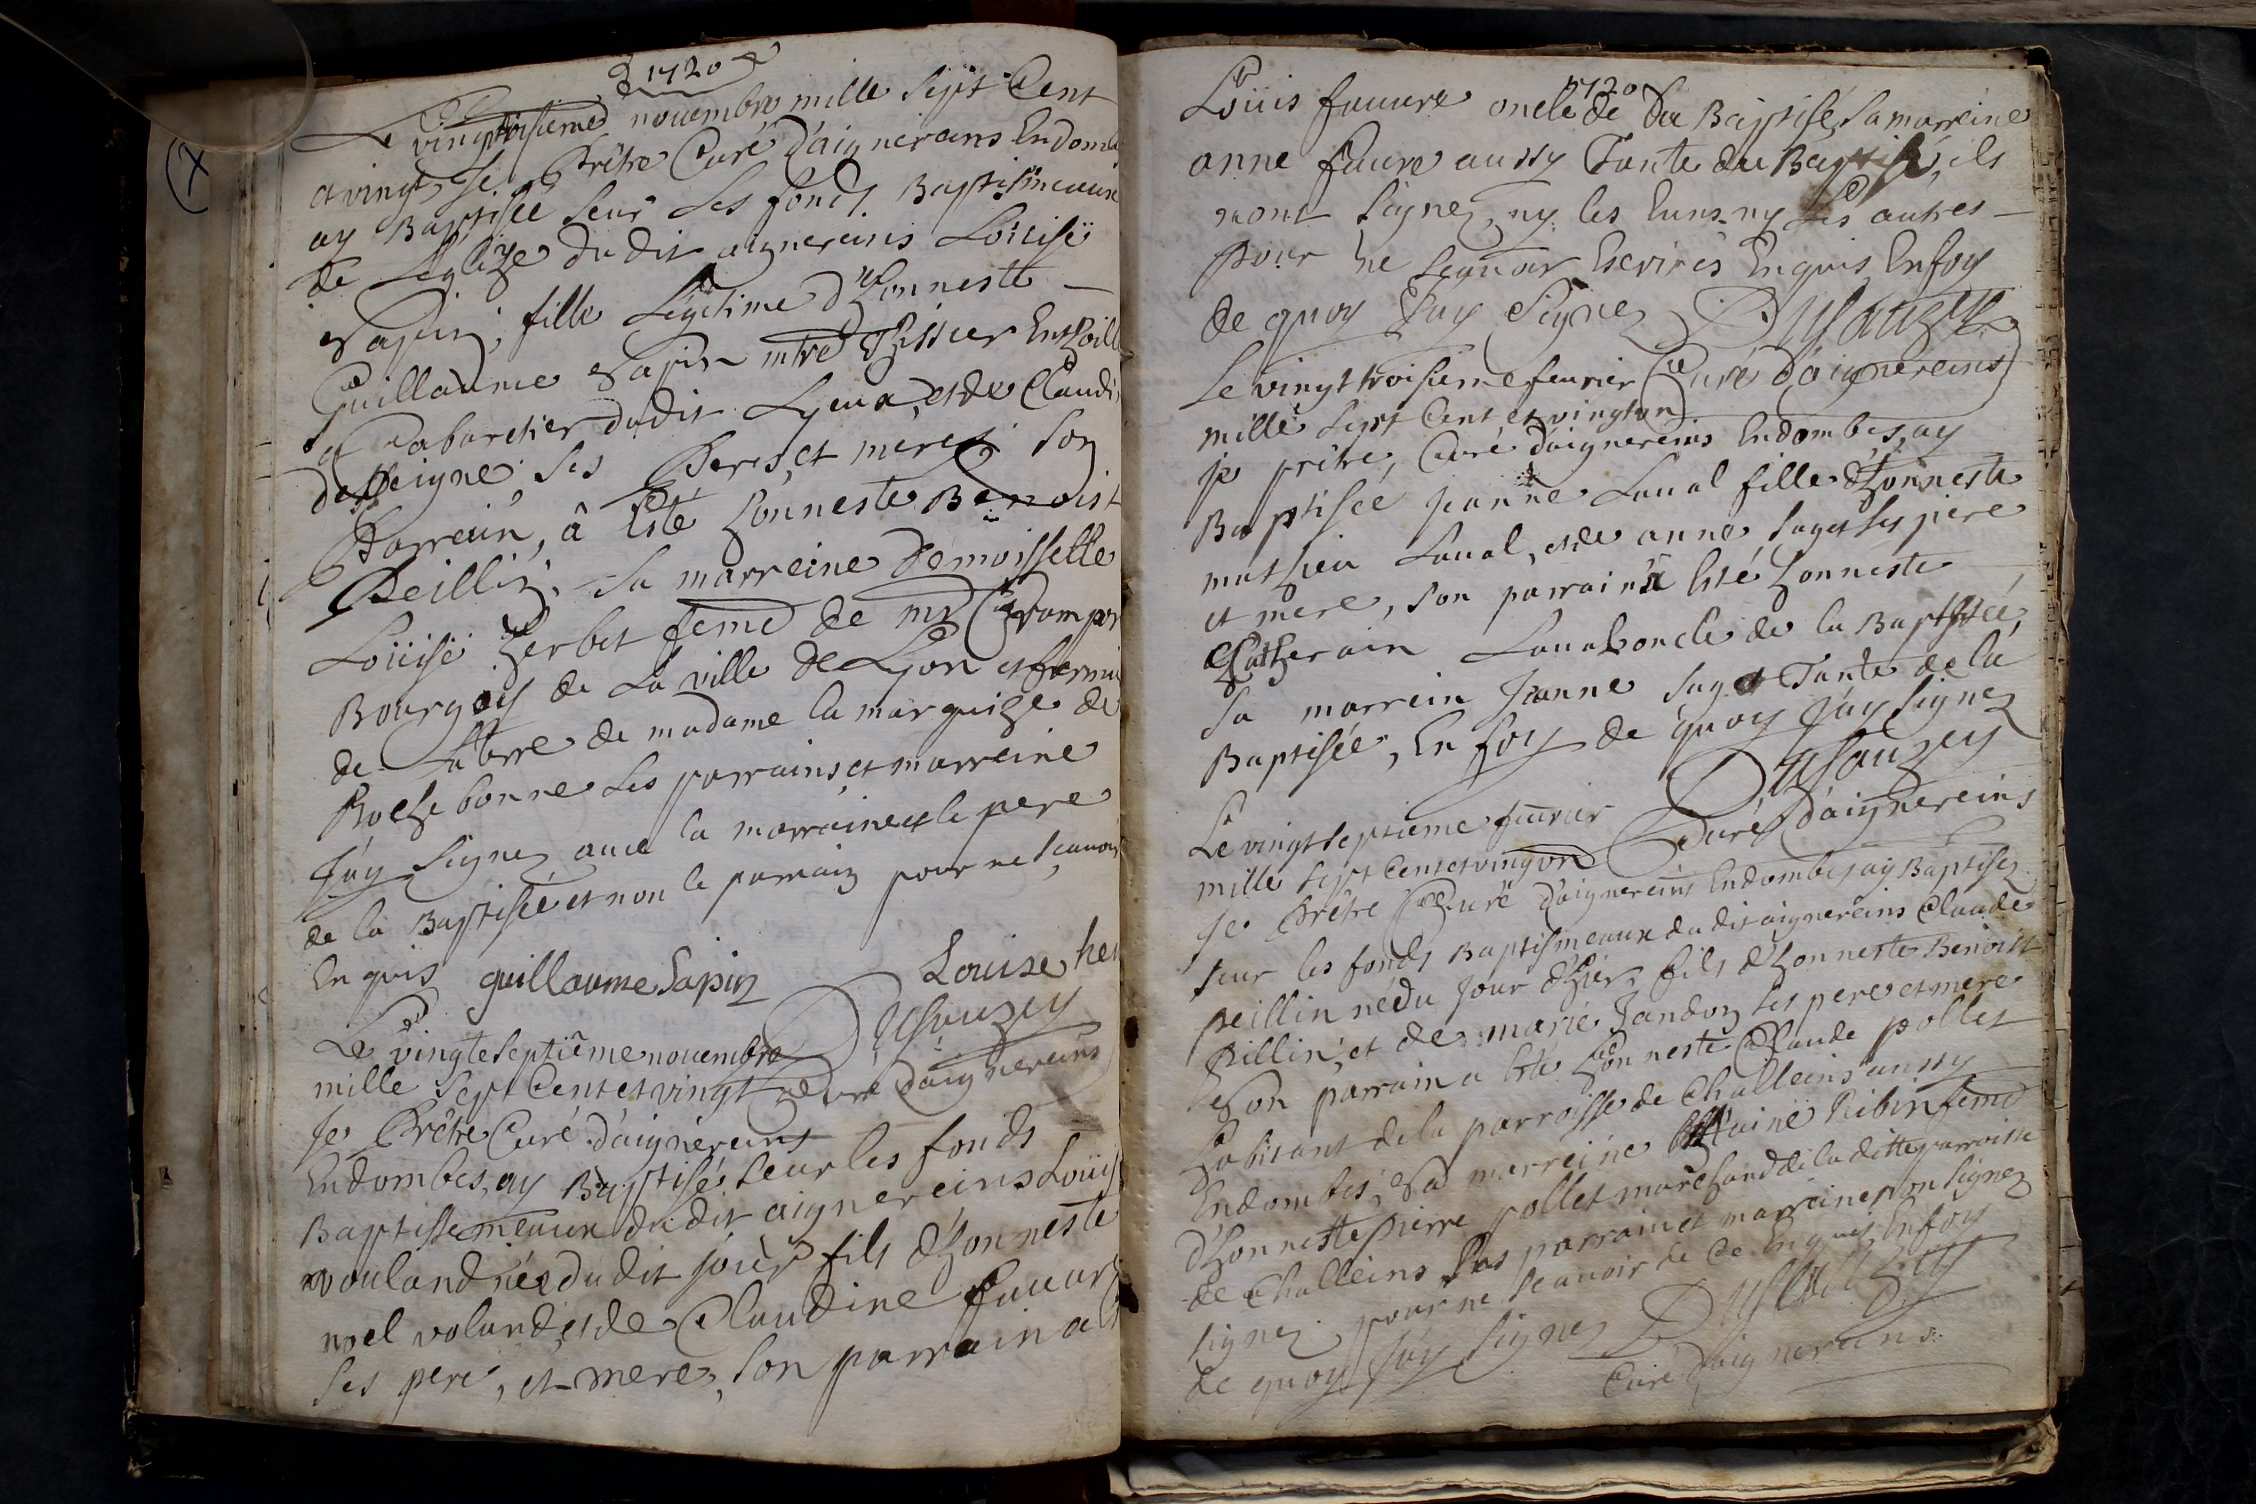 1720
Le vingtroisieme novembre mille Sept Cent
et vingt Je Prêtre Curé d'aignereins Endombe
ay Baptisée Seur Les fonds Baptismeaux
de L'eglize du dit aignereins Loüise
Sapin, fille Legitime d'honneste
Guillaume Sapin mtre Tissier Enthoille
et Cabaretier du dit Lyeux, et de Claudi
de ses Peres, et meres Son
Parrein, â Esté honneste Benoist
Peillin, Sa marreine Demoisselle
Loüise herbet feme de mr
Bourgoys de La ville de Lyon et fermie
de La terre de madame la marquize de
Rochebonne Les parrains, et marreine
J'ay Signez avec la marraine et le pere
de la Baptisée et non le parrain pour ne Scavoir
Enquis guillaume Sapin Louise her
Le vingteseptiême novembre Dusauzey
mille Sept Cent et vingt Curé d'aignereins
Je Prêtre Curé d'aignereins
Endombes, ay Baptisé Seur les fonds
Baptissemeaux du dit aignereins Loüis
vouland née du dit jour fils d'honneste
noel voland, et de Claudine fauure
Ses pere, et mere, Son parrain a
1720
Loüis fauure oncle de du Baptisé, Sa marreine
anne fauure aussy Tante du Baptisé, ils
nont Signez ny les Euns ny Les autres
pour ne Scavoir Escrires Enquis Enfoy
de quoy J'ay Signez Dusauzey
Le vingt troisieme fevrier Curé d'aignereins
mille Sept Cent et vingt un
je prêtre, Curé d'aignereins Endombes, ay
Baptisée Jeanne Laual fille d'honneste
mathieu Laual, et de anne Suget Ses pere
et mere, Son parrain a Esté honneste
Catherain Laual oncle de la Baptisée,
Sa marrein Jeanne Suget Tante de la
Baptisée, En foy de quoy J'ay Signez
Dusauzey
Le vingt Septieme feurier Curé d'aignereins
mille Sept Cent et vingt un
Je Prêtre Curé d'aignereins Endombes ay Baptisez
Seur les fonds Baptismeaux du dit aignereins Claude
peillin né du Jour d'hier, fils d'honneste Benoist
Pillin, et de marie Jandon Ses pere et mere
Son parrain a Esté honneste Claude pollet
habitant de la parroisse de Challeins aussy
Endombes, Sa marreine Ribin feme
d'honneste pierre pollet marchand de la ditte parroisse
de Challeins Les parrain et marreine non Signez
Signez pour ne Scauoir de Ce Enquis Enfoy
de quoy J'ay Signez Dusauzey
Curé d'aignereins